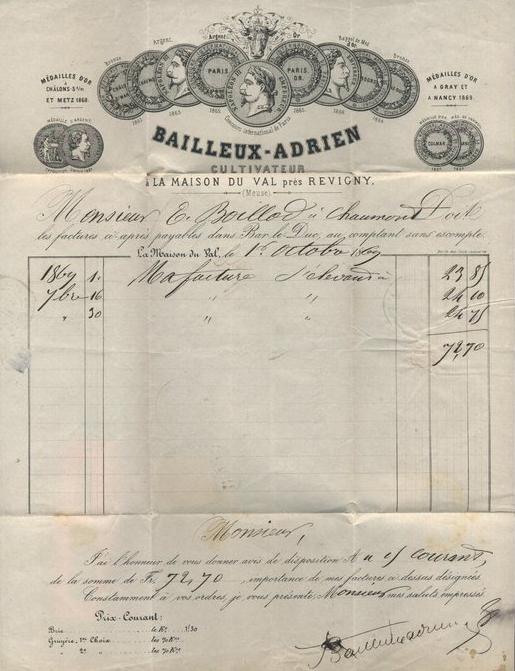 Bronze Argent. Argent Or Rappel de Méd. Bronze
MÉDAILLES D'OR
à
CHÂLONS S/m
ET METZ 1868.
MÉDAILLES D'OR
A GRAY ET
A NANCY 1869.
PARIS
PARIS
OR.
COLMAR
Concours international de Paris
BAILLEUX-ADRIEN
CULTIVATEUR
À LA MAISON DU VAL près REVIGNY.
(Meuse)
Monsieur E. Boillod à Chaumont Doit
les factures ci après payables dans Bar le Duc, au comptant sans escompte.
La Maison du Val, le 1er Octobre 1869
1869 1. Ma facture s'élevant à 23 85
7bre 16 " " 24 10
" 30 " " 24 75
72,70
Monsieur,
J'ai l'honneur de vous donner avis de disposition courant,
de la somme de Fr. 72,70, importance de mes factures ci dessus désignées.
Constamment à vos ordres je vous présente, Monsieur mes saluts empressés.
Prix-Courant:
Brie le K° 1/30
Gruyère, 1er Choix les 70 K°s
" 2e " les 70 K°s
Bailleux adrien